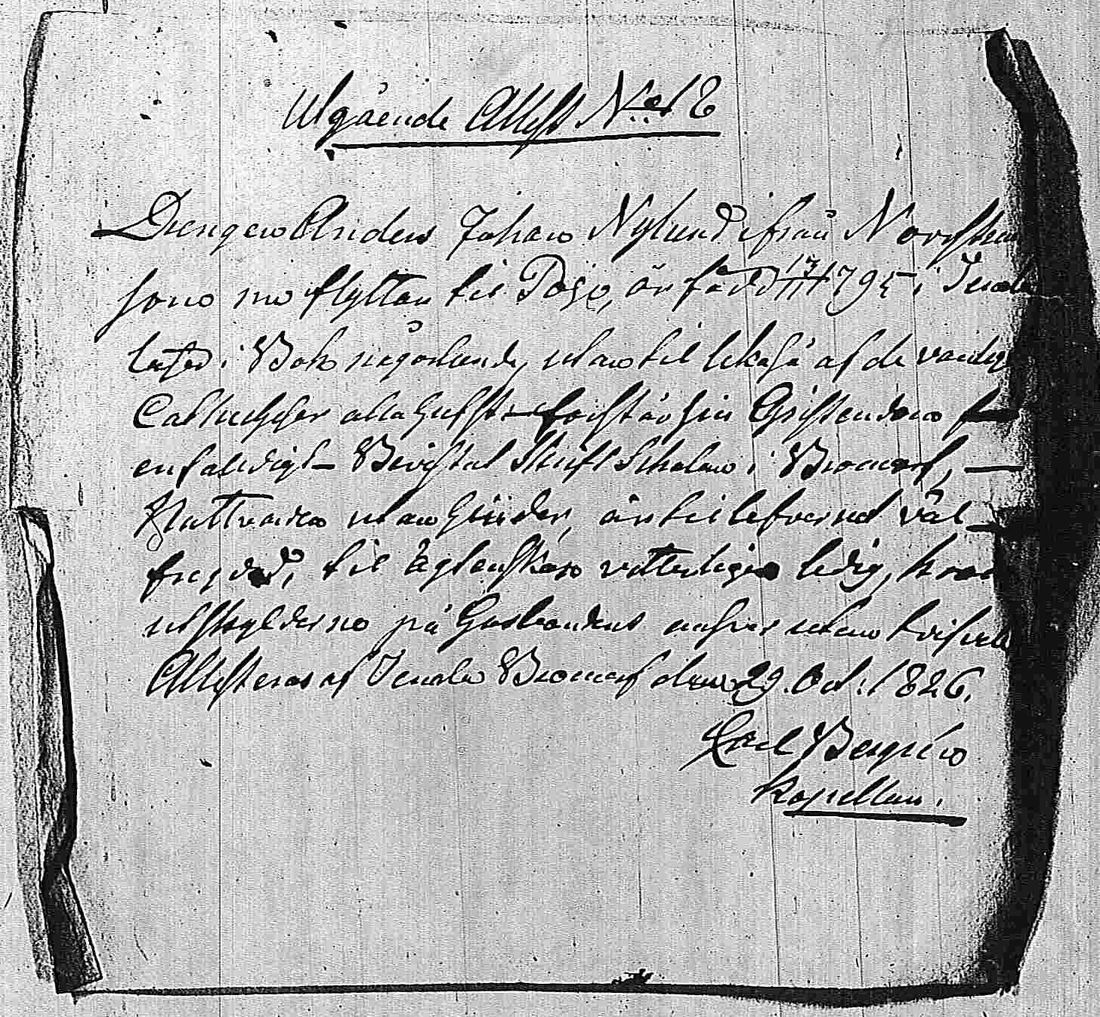 Utgående Attest No 18
Drengen Anders Johan Nylund ifrån Norrstra
som nu flyttar til Pojo, är född 17/11 1795 i Tenala
läser i Bok någorlunda, utan til likaså af de vanlige
Catecheser alla förstår sin Christendom
enfaldigt Bevistat Skrift Scholan i Bromarf,
Nattvarden utan hinder, är til lefvernet väl
fregdad, til ägtenskap vitterligen ledig,
utskylderna på Husbondens utan
Attesteras af Tenala Bromarf den 29. Oct: 1826.
Carl Bergrén
Kapellan.